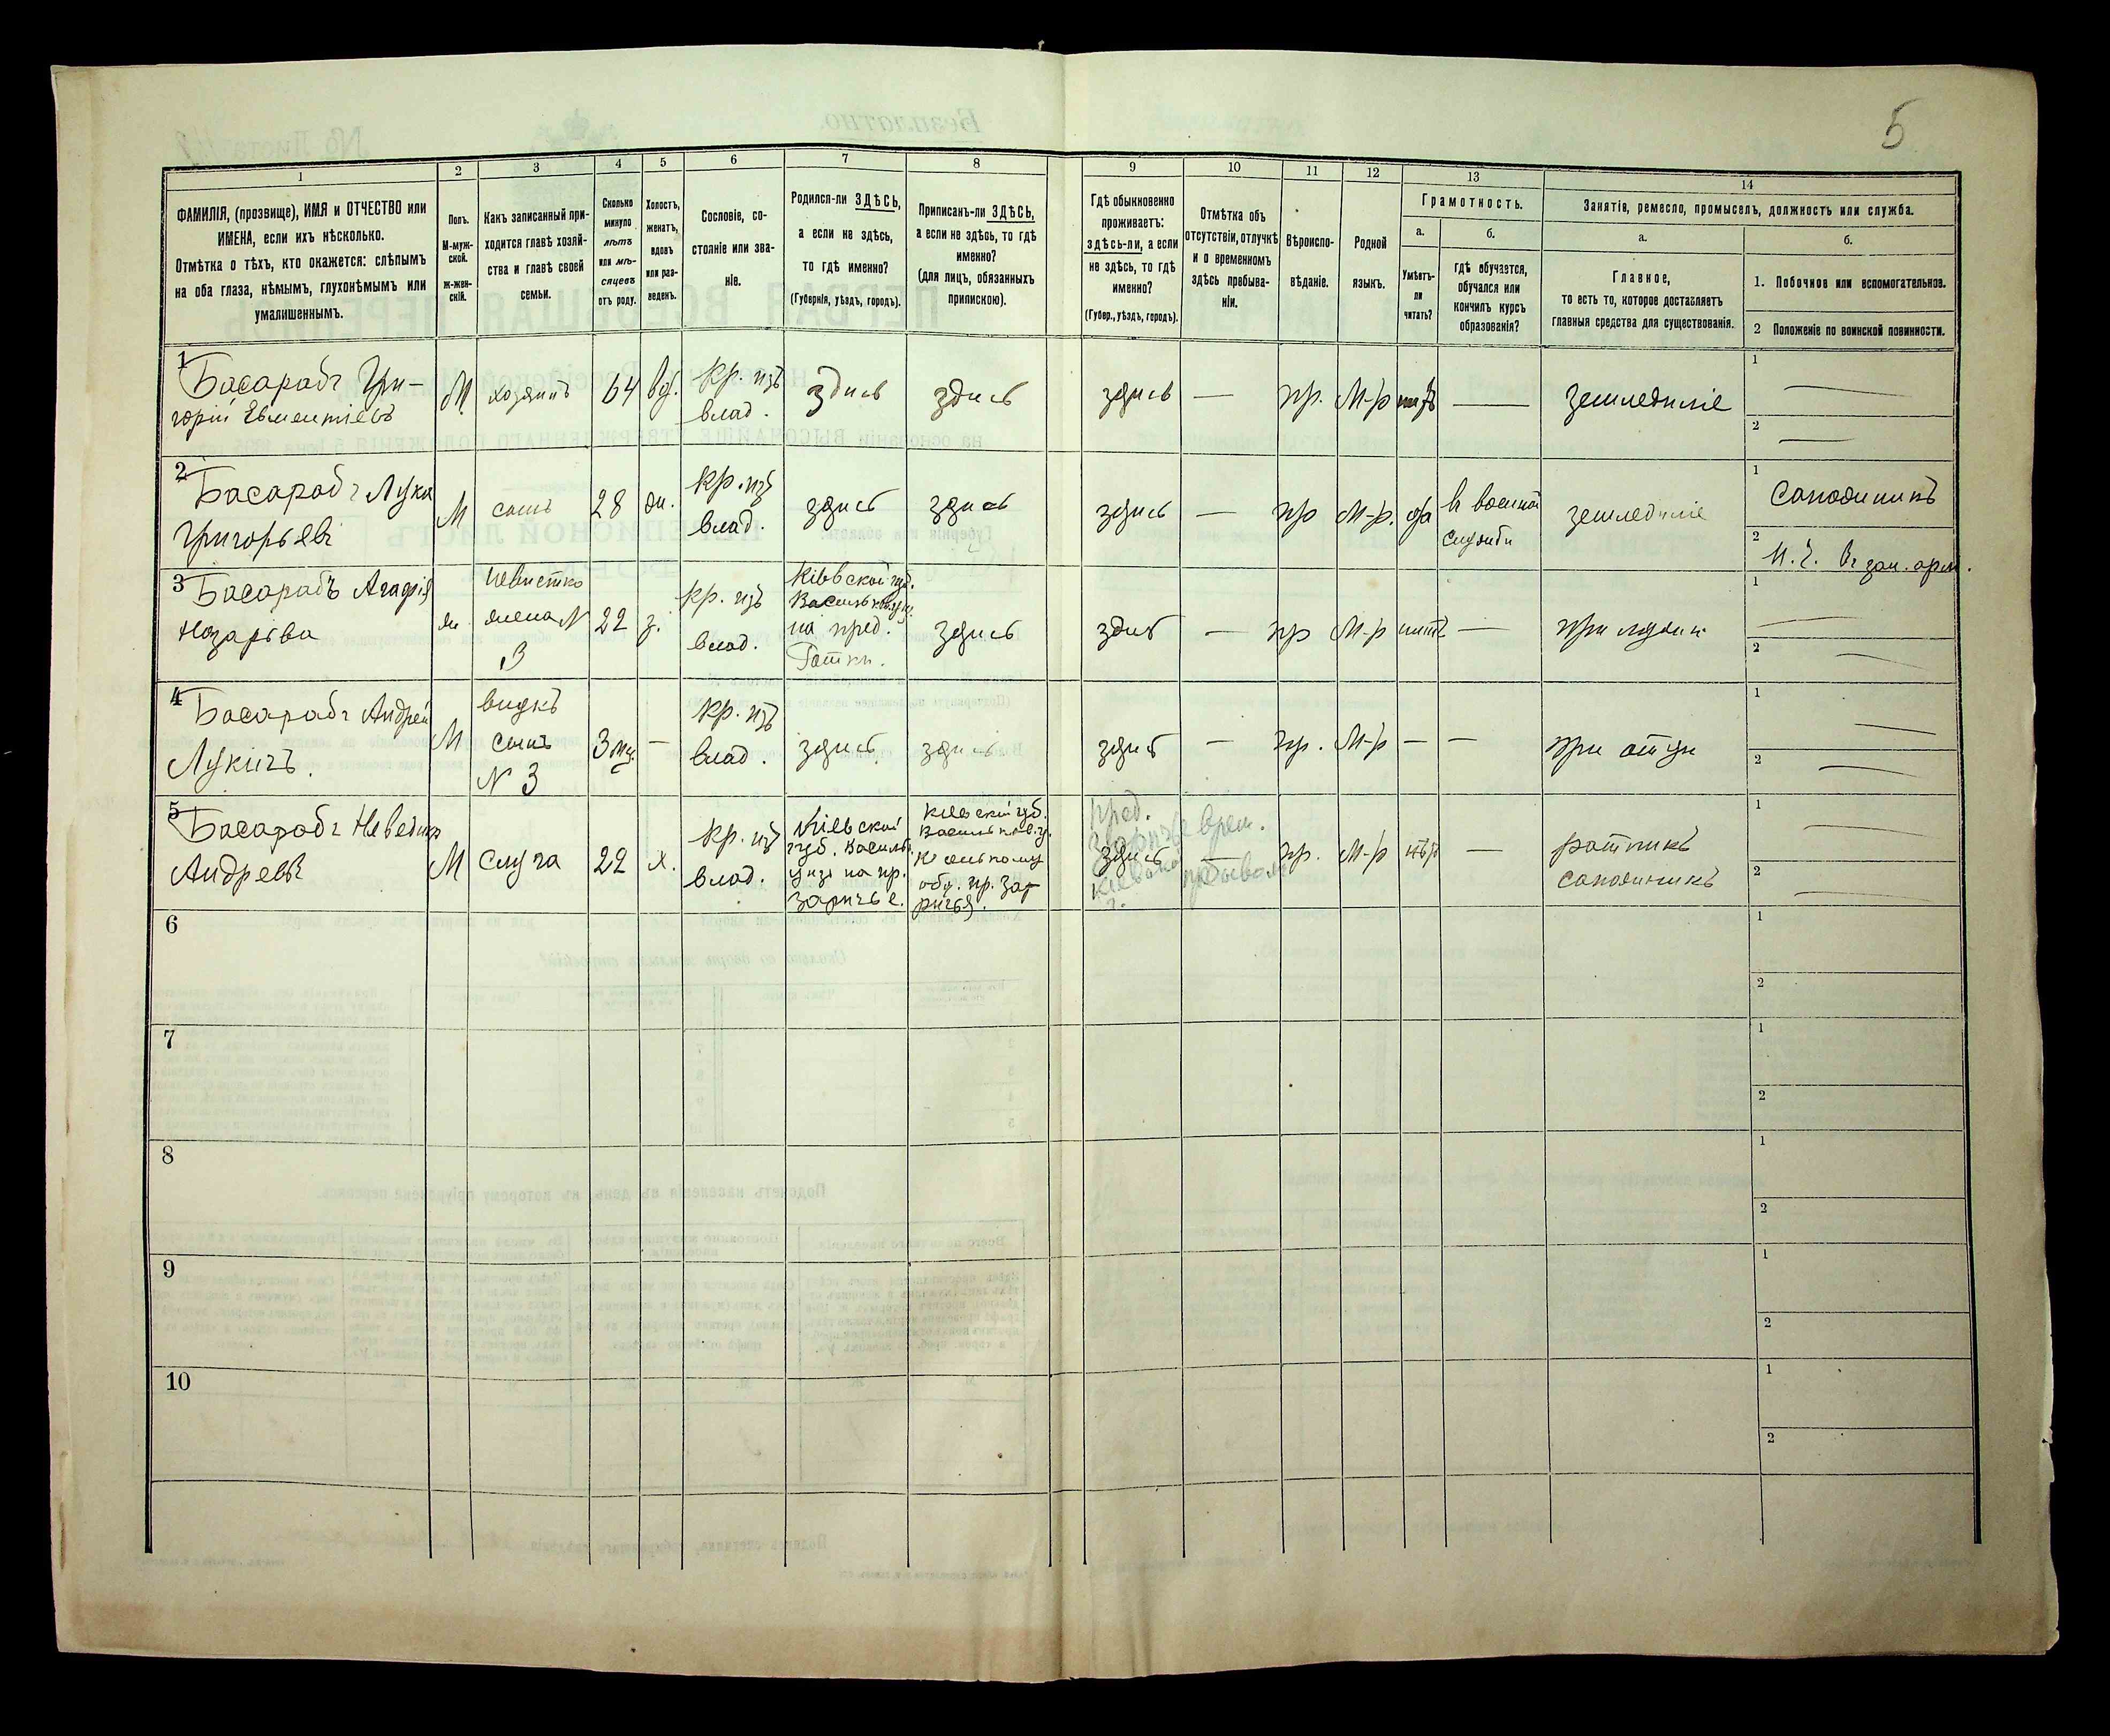 5
1
2
3
4
5
6
7
8
9
10
11
12
13
14
ФАМИЛІЯ, (прозвище), ИМЯ и ОТЧЕСТВО или
ИМЕНА, если ихъ нѣсколько.
Отмѣтка о тѣхъ, кто окажется: слѣпымъ
на оба глаза, нѣмымъ, глухонѣмымъ или
умалишеннымъ.
Полъ.
М-муж-
ской.
Ж-жен-
скій.
Какъ записанный при-
ходится главѣ хозяй-
ства и главѣ своей
семьи.
Сколько
минуло
лѣтъ
или мѣ-
сяцевъ
отъ роду.
Холостъ,
женатъ,
вдовъ
или раз-
веденъ.
Сословіе, со-
стояніе или зва-
ніе.
Родился-ли ЗДѢСЬ,
а если не здѣсь,
то гдѣ именно?
(Губернія, уѣздъ, городъ).
Приписанъ-ли ЗДѢСЬ,
а если не здѣсь, то гдѣ
именно?
(для лицъ, обязанныхъ
припискою).
Гдѣ обыкновенно
проживаетъ:
здѣсь-ли, а если
не здѣсь, то гдѣ
именно?
(Губер., уѣздъ, городъ).
Отмѣтка объ
отсутствіи, отлучкѣ
и о временномъ
здѣсь пребыва-
ніи.
Вѣроиспо-
вѣданіе.
Родной
языкъ.
Грамотность.
а.
Умѣетъ-
ли
читать?
б.
гдѣ обучается,
обучался или
кончилъ курсъ
образованія?
Занятія, ремесло, промыселъ, должность или служба.
а.
Главное,
то есть то, которое доставляетъ
главныя средства для существованія.
б.
1. Побочное или вспомогательное.
2 Положеніе по воинской повинности.
1
Басарабъ Гри-
горій Евментіевъ
М
хозяинъ
64
вд.
кр. изъ
влад.
здись
здись
здись
—
пр.
М-р
—
земледиліе
1
—
2
—
2
Басарабъ Лука
Григорьевъ
М
сынъ
28
ж.
кр. изъ
влад.
здись
здись
здись
—
пр
М-р.
да
в военной
служби
земледиліе
1
Сапожникъ
2
Н. Ч. в зап. арм.
3
Басарабъ Агафія
Назарова
ж.
невистка
жена N
3
22
з.
кр. изъ
влад.
Кіевской губ.
на пред.
здись
здись
—
пр
М-р
нитъ
—
при мужи
1
—
2
—
4
Басарабъ Андрей
Лукичъ.
М
внукъ
сынъ
N 3
3 мц.
—
кр. изъ
влад.
здись
здись
здись
—
пр.
М-р
—
—
при отци
1
—
2
—
5
Басарабъ
Андреевъ
М
слуга
22
х.
кр. изъ
влад.
Кіевской
губ. Василь.
на пр.
Заричье.
Кіевской губ.
общ. пр. За-
ричья.
пред.
Заричье
здись
врем.
—
пр.
М-р
нитъ
—
сапожникъ
1
—
2
—
6
1
2
7
1
2
8
1
2
9
1
2
10
1
2